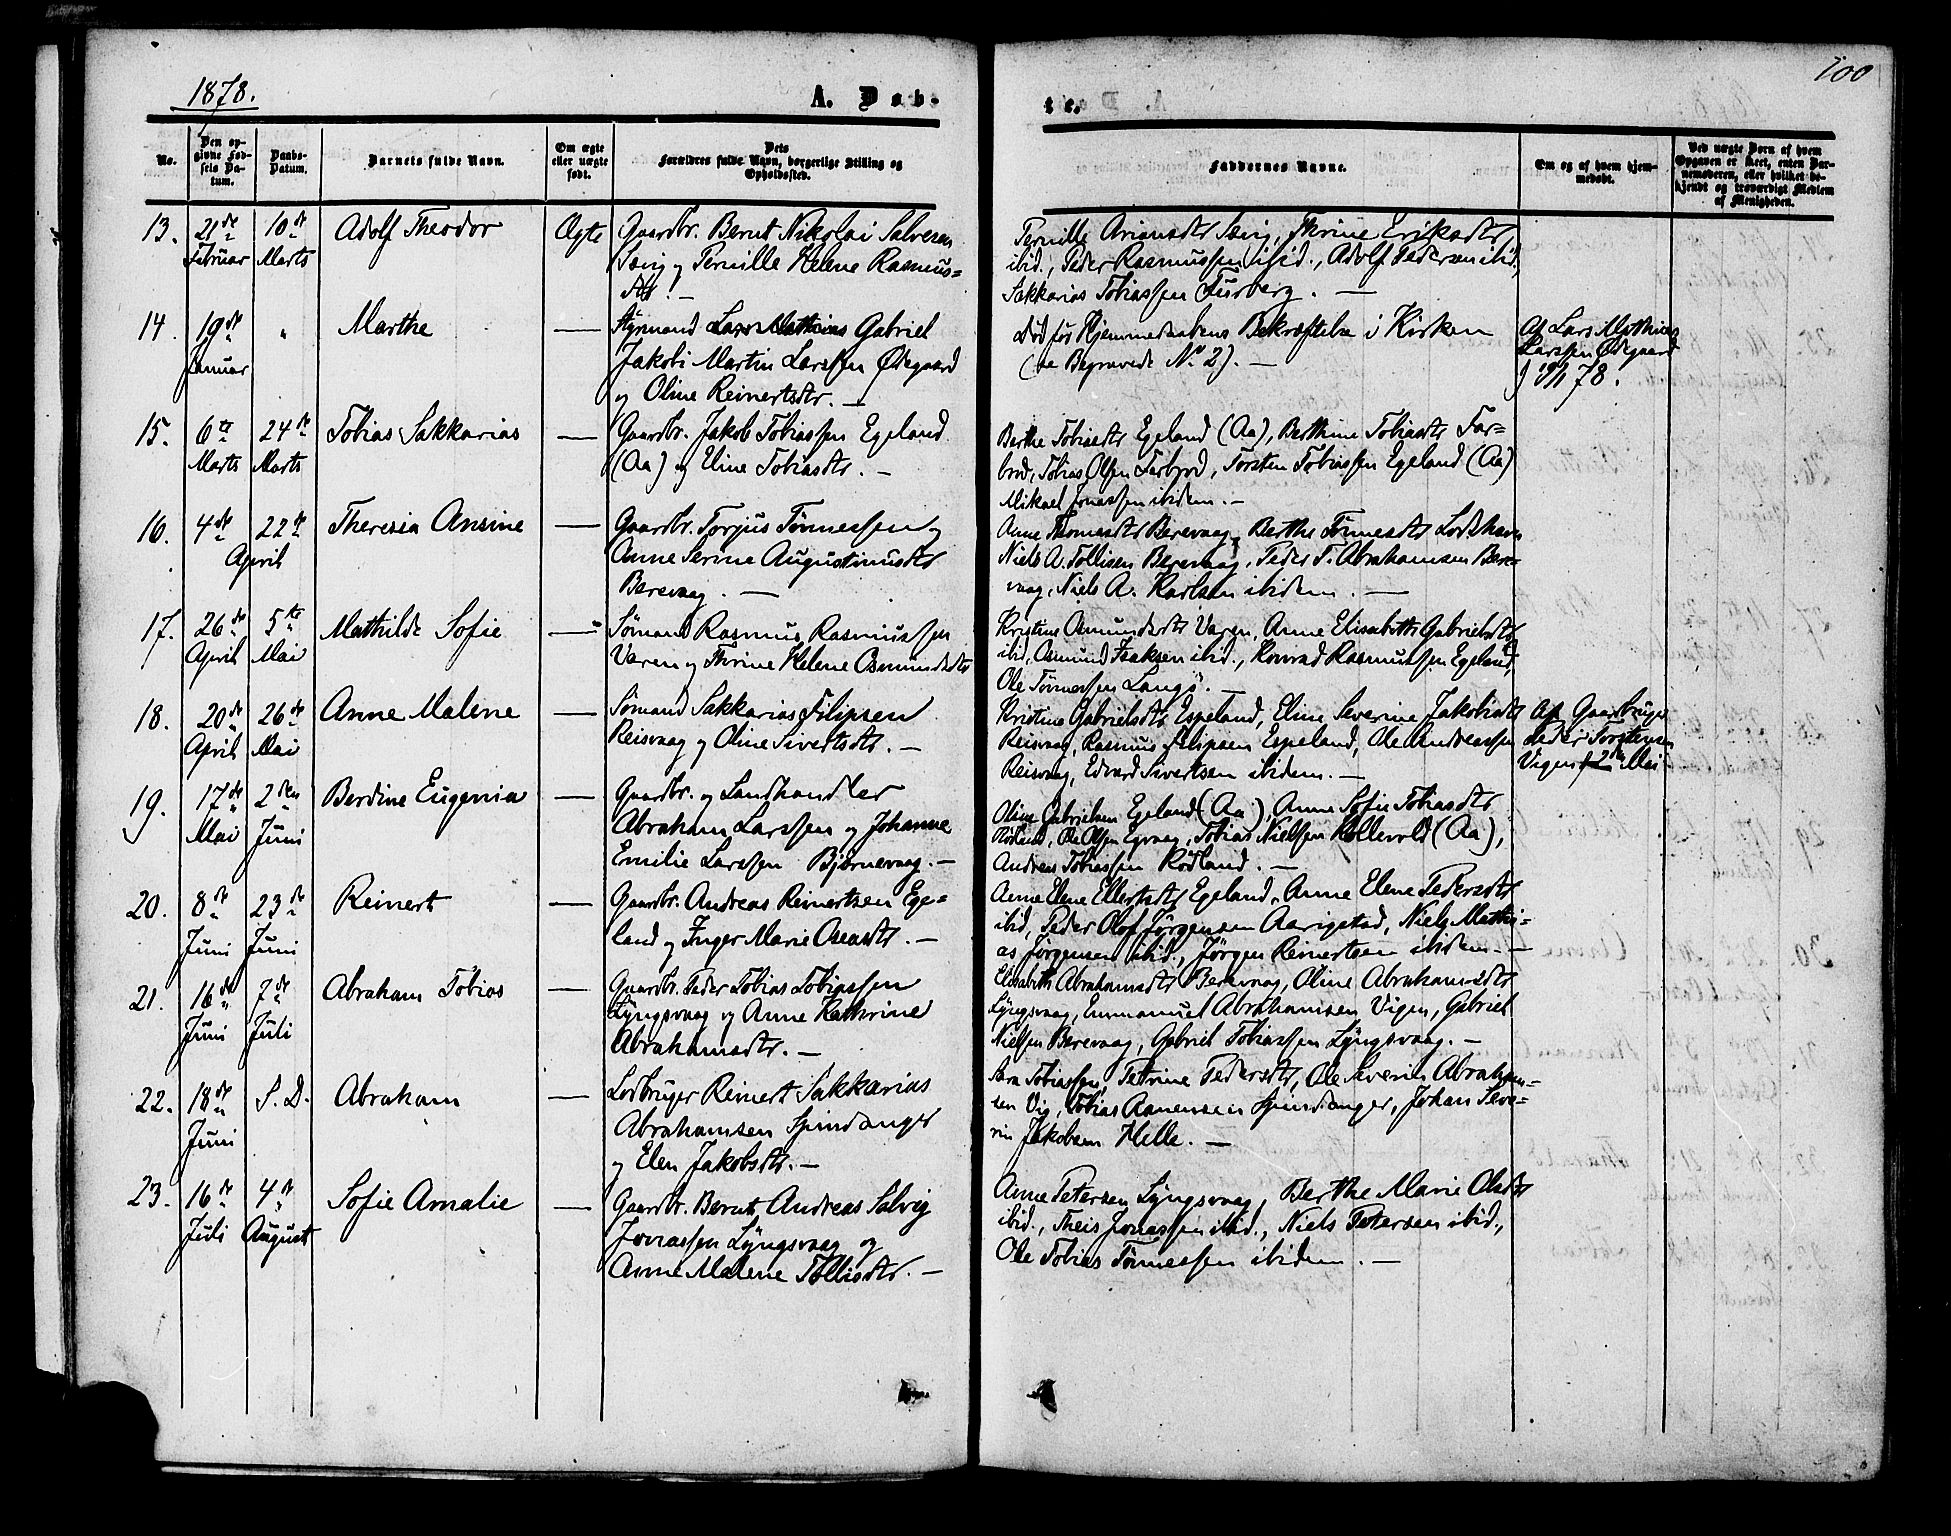 1878.
A. Døb-
te.
100
No.
Den opgivne Fødsels Datum.
Daabs-Datum.
Barnets fulde Navn.
Om ægte eller uægte født.
Dets Forældres fulde Navn, borgerlige Stilling og Opholdssted.
Faddernes Navne.
Om og af hvem hjemmedøbt.
Ved uægte Børn af hvem Opgaven er skeet, enten Barnemoderen, eller hvilket bekjendt og troværdigt Medlem af Menigheden.
13. 21de Februar 10de Marts Adolf Theodor Ægte
Gaardbr. Bernt Nikolai Salvesen
og Pernille Helene Rasmus-
dtr. —
Pernille Thrine Eriksdtr
ibid., Peder Rasmussen ibid., Adolf Pedersen ibid.
Sakkarias Tobiassen Furberg. —
14. 19de Januar " Marthe —
Styrmand Gabriel
Jakobi Martin Larssen Ødegaard
og Oline Reinertsdtr. —
Død før Hjemmedaabens Bekræftelse i Kirken
(se Begravede No 2). —
Af Lars Mathias
Larssen Ødegaard
78.
15. 6te Marts 24de Marts Tobias Sakkarias —
Gaardbr. Jakob Tobiassen Egeland
(Aa) og Eline Tobiasdtr. —
Berthe Tobiasdtr Egeland (Aa), Berthine Tobiasdtr Far-
brod, Tobias Olsen Farbrod, Torsten Tobiassen Egeland (Aa)
Mikael Jonassen ibidem. —
16. 4de 22de April Theresia Ansine —
Gaardbr. Torjus Tönnessen og
Anne Serine Augustinusdtr
Berevaag. —
Anne Thomasdtr Berevaag, Berthe Tönnesdtr Lodshavn
Niels A. Tollisen Berevaag, Peder T. Abrahamsen Bere-
vaag, Niels A. Karlsen ibidem. —
17. 26de April 5te Mai Mathilde Sofie —
Sömand Rasmus Rasmussen
Varen og Thrine Helene Osmundsdtr
Kristine Osmundsdtr Varen, Anne Elisabeth Gabrielsdtr
ibid, Osmund Isaksen ibid., Konrad Rasmussen Egeland,
Ole Tönnessen Langö. —
18. 20de April 26de Mai Anne Malene —
Sömand Sakkarias Filipsen
Reisvaag og Oline Sivertsdtr. —
Kristine Gabrielsdtr Espeland, Eline Severine Jakobsdtr
Reisvaag, Rasmus Filipsen Espeland, Ole Andreassen
Reisvaag, Edvard Sivertsen ibidem. —
Af Gaardbruger
Peder Torstensen
Vigen 2den Mai
19. 17de Mai 2den Juni Berdine Eugenia —
Gaardbr. og Landhandler
Abraham Larssen og Johanne
Emilie Larssen Bjørnevaag. —
Oline Gabrielsen Egeland (Aa), Anne Sofie Tobiasdtr
Rödland, Ole Olsen Egvaag, Tobias Nielsen Kollevold (Aa),
Andreas Tobiassen Rödland. —
20. 8de Juni 23de Juni Reinert —
Gaardbr. Andreas Reinertsen Ege-
land og Inger Marie Oseasdtr. —
Anne Elene Ellertsdtr Egeland, Anne Elene Pedersdtr
ibid, Peder Olof Jörgensen Aarigstad, Niels Mathi-
as Jörgensen ibid., Jörgen Reinertsen ibidem. —
21. 16de Juni 7de Juli Abraham Tobias —
Gaardbr. Peder Tobias Tobiassen
Lyngsvaag og Anne Kathrine
Abrahamsdtr. —
Elisabeth Abrahamsdtr Berevaag, Oline Abrahamsdtr
Lyngsvaag, Emmanuel Abrahamsen Vigen, Gabriel
Nielsen Berevaag, Gabriel Tobiassen Lyngsvaag. —
22. 18de Juni S. D. Abraham —
Lodbruger Reinert Sakkarias
Abrahamsen Spindanger
og Elen Jakobsdtr. —
Tobiassen, Petrine Pedersdtr, Ole Severin Abraham-
sen Vig, Tobias Aanensen Spindanger, Johan Seve-
rin Jakobsen Helle. —
23. 16de Juli 4de August Sofie Amalie —
Gaardbr. Bernt Andreas Salvig
Jonassen Lyngsvaag og
Anne Malene Tollisdtr. —
Anne Petersen Lyngsvaag, Berthe Marie Olsdtr
ibid., Theis Jonassen ibid., Niels Petersen ibid.,
Ole Tobias Tönnessen ibidem. —